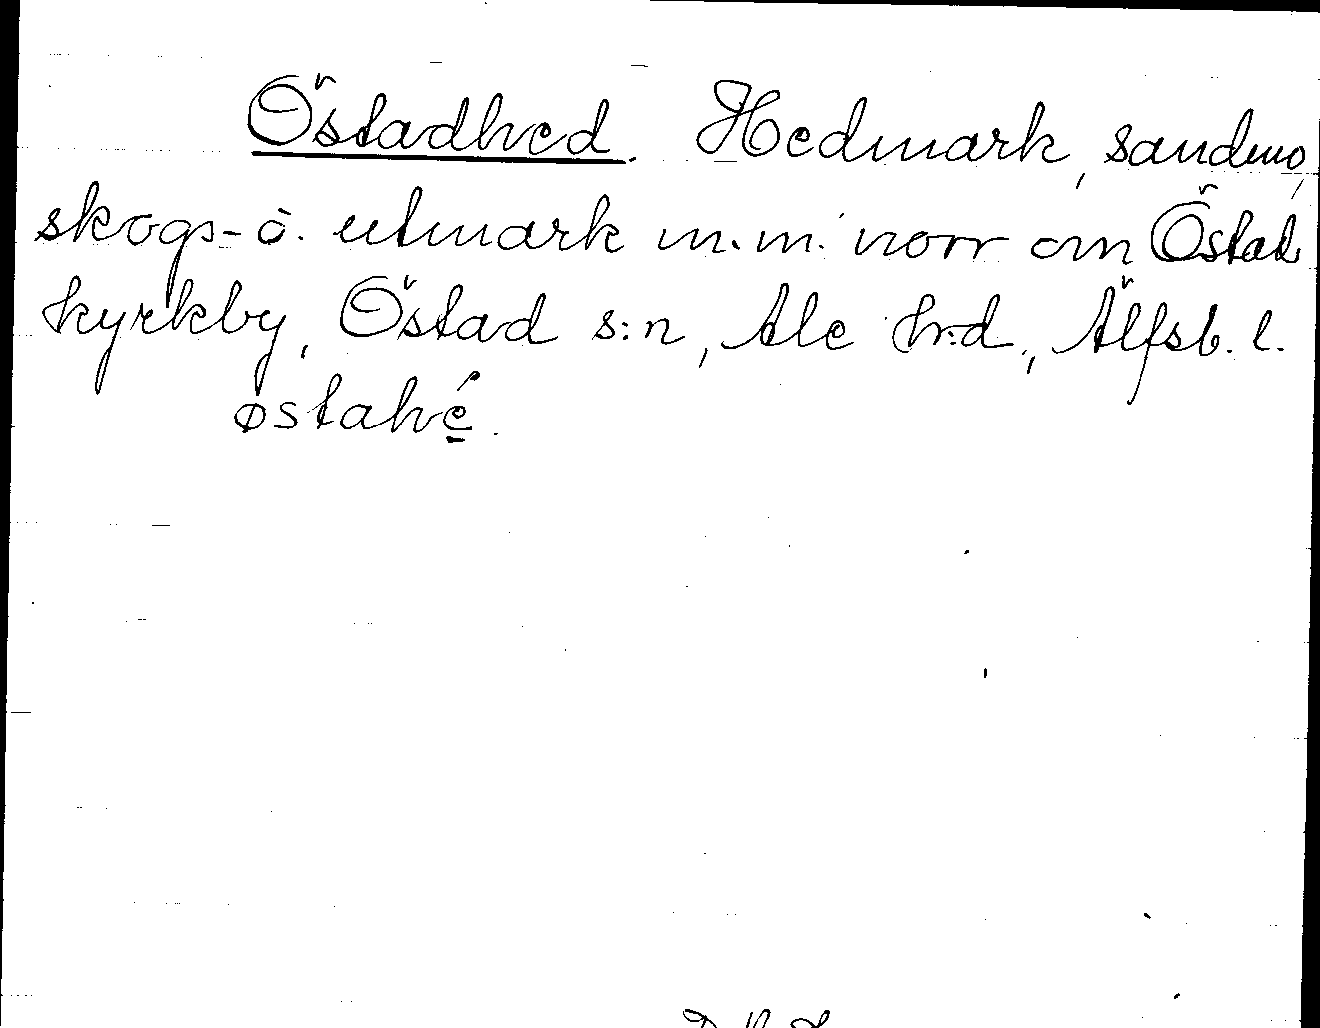 Östadhed. Hedmark, sandmo,
skogs- o. utmark m.m. norr om Östad
kyrkby, Östad s:n, Ale hrd., Älfsb. l.
østahé.